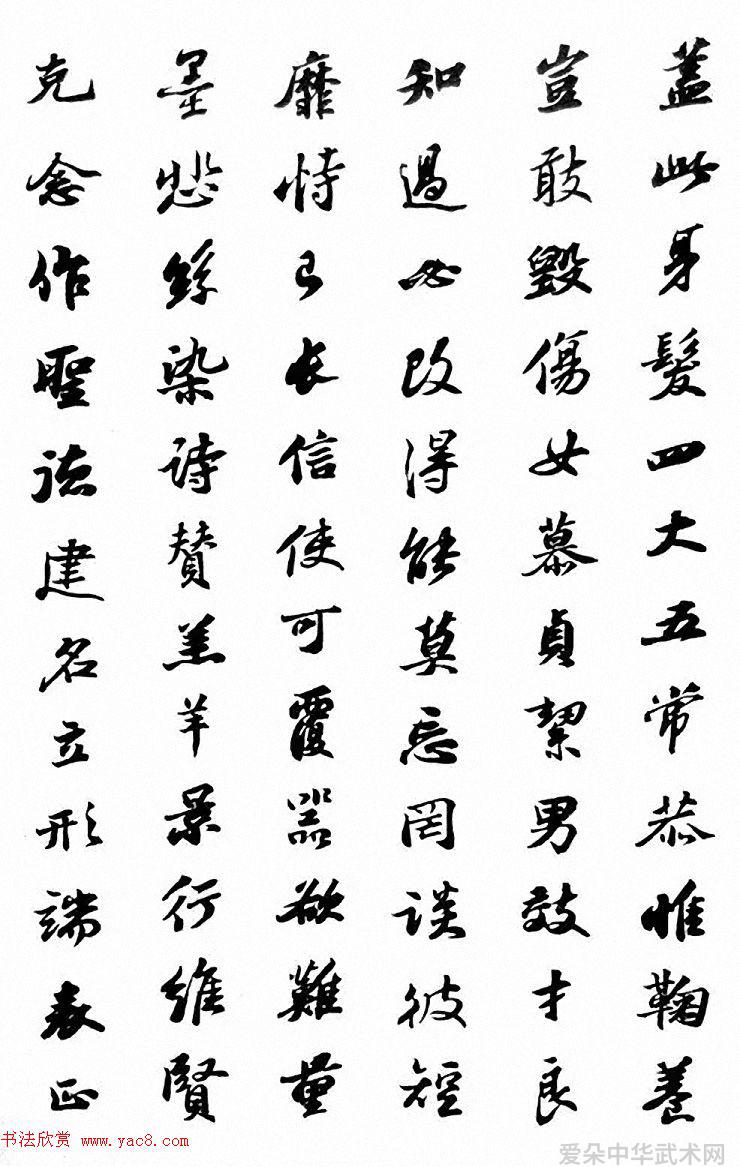 蓋此身髮四大五常恭惟鞠養
豈敢毀傷女慕貞絜男效才良
知過必改得能莫忘罔談彼短
靡恃己長信使可覆器欲難量
墨悲絲染詩贊羔羊景行維賢
克念作聖德建名立形端表正
书法欣赏 www.yac8.com
爱朵中华武术网